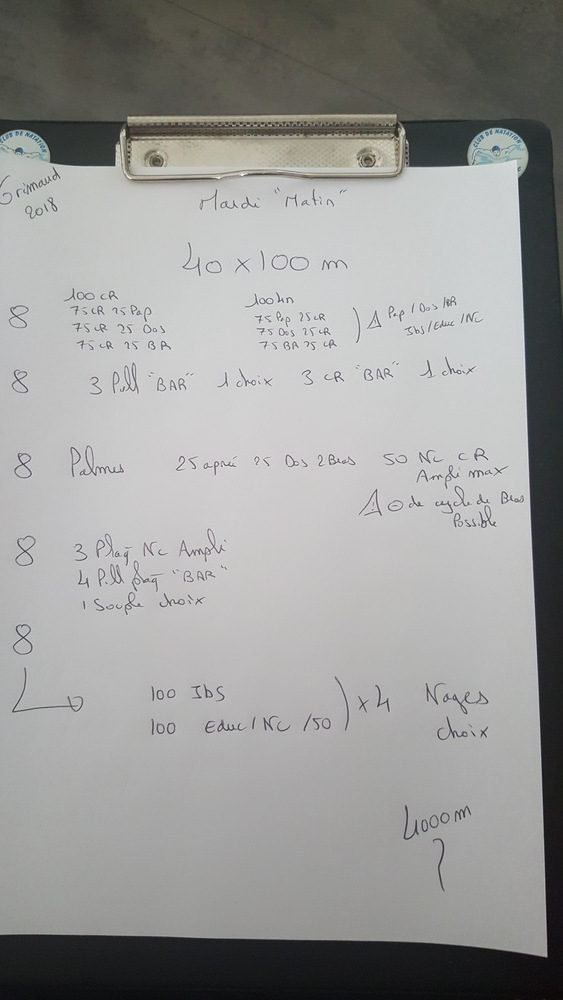 CLUB DE NATATION
CLUB DE NATATION
Grimaud
2018
Mardi "Matin"
40 x 100 m
8
100 CR
75 CR 25 Pap
75 CR 25 Dos
75 CR 25 BR
100 4n
75 Pap 25 CR
75 Dos 25 CR
75 BR 25 CR
Pap / Dos / BR
Ibs / Educ / NC
8 3 Pull "BAR" 1 choix 3 CR "BAR" 1 choix
8 Palmes 25 apnée 25 Dos 2 Bras 50 Nc CR
Ampli max
de cycle de Bras
Possible
8 3 Plaq Nc Ampli
4 Pull plaq "BAR"
1 Souple choix
8
100 Ibs
100 Educ / Nc /50
) x 4 Nages
choix
4000 m